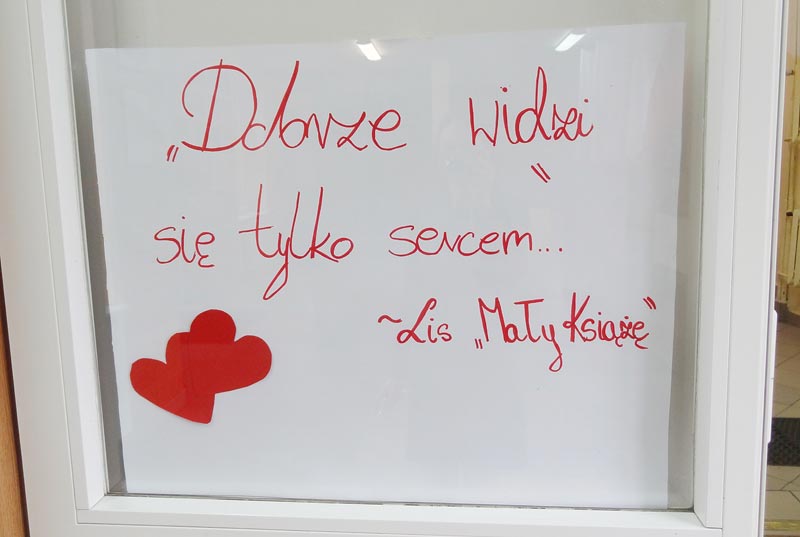 „Dobrze widzi
się tylko sercem..."
~Lis „Mały Książę"